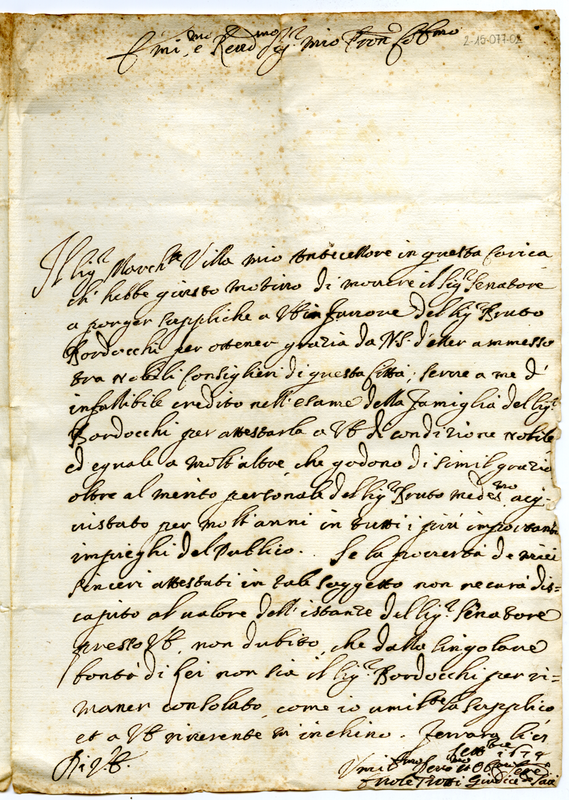 Emi.mo e Reved.mo Sig.r mio Pron. Col.mo
2-15-077-02
Il Sig.r March.se Villa mio Antecessore in questa Carica
ch'hebbe giusto motivo di movere il Sig.r Senatore
a porger suppliche a VE in favore del Sig.r Bruto
Bordocchi per ottener grazia da NS. d'esser ammesso
tra Nobili Consiglieri di questa Città; serve a me d'
infallibile credito nell'esame della famiglia del Sig.r
Bordocchi per attestarla a VE di condizione Nobile
ed eguale a molt'altre, che godono di simil grazia
oltre al merito personale del Sig.r Bruto medes.mo acq-
uistato per molt'anni in tutti i più importanti
impieghi del Publico. Se la povertà de miei
sinceri attestati in tale soggetto non recarà dis-
capito al valore dell'istanze del Sig.r Senatore
presso VE, non dubito, che dalla singolare
bontà di Lei non sia il Sig.r Bordocchi per ri-
maner consolato, come io umil.te la supplico
et a VE riverente m'inchino. Ferrara li
Sett.bre 1674
Di V.E.
Umil.mo Dev.mo
Ercole Trotti Giudice de Savi